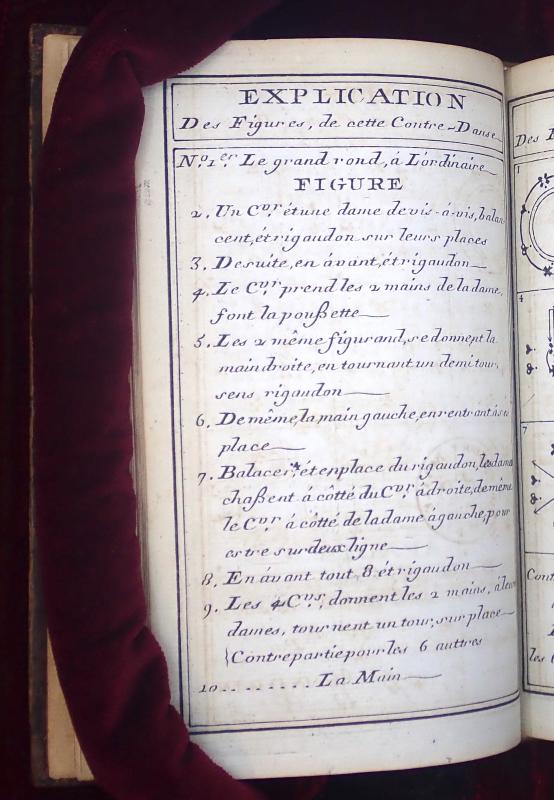 EXPLICATION
Des Figures, de cette Contre-Danse
N.º 1.er Le grand rond, á L'ordinaire
FIGURE
2. Un C.vr étune dame devis-á-vis, balan
cent, ét rigaudon sur leurs places
3. Desuite, en ávant, ét rigaudon
4. Le C.vr prend les 2 mains de la dame,
font la poußette
5. Les 2 même figurand, se donnent la
main droite, en tournant un demi tour,
sens rigaudon
6. De même, la main gauche, en rentrant á sa
place
7. Balacer, ét en place du rigaudon, les dames
chaßent á côtté du C.vr á droite, de même
le C.vr á côtté de la dame á gauche, pour
estre sur deux ligne
8. En ávant tout 8 ét rigaudon
9. Les 4 C.vs, donnent les 2 mains, á leur
dames, tournent un tour, sur place
Contrepartie pour les 6 auttres
10 ......... La Main
Des F
1
4
7
Cont
les 6